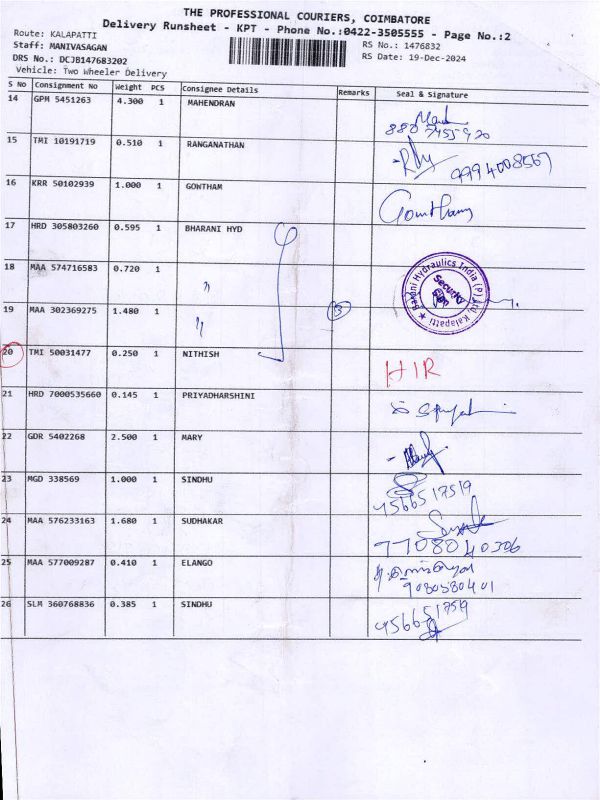 THE PROFESSIONAL COURIERS, COIMBATORE
Delivery Runsheet - KPT - Phone No.:0422-3505555 - Page No.:2
Route: KALAPATTI
RS No.: 1476832
Staff: MANIVASAGAN
RS Date: 19-Dec-2024
DRS No.: DCJB147683202
Vehicle: Two Wheeler Delivery
S No Consignment No Weight PCS Consignee Details Remarks Seal & Signature
14 GPM 5451263 4.300 1 MAHENDRAN
15 TMI 10191719 0.510 1 RANGANATHAN
9994008567
16 KRR 50102939 1.000 1 GOWTHAM
Gowtham
17 HRD 305803260 0.595 1 BHARANI HYD
18 MAA 574716583 0.720 1 "
Hydraulics India (P) Ltd, Kalapatti
Security
19 MAA 302369275 1.480 1 "
3
20 TMI 50031477 0.250 1 NITHISH
HIR
21 HRD 7000535660 0.145 1 PRIYADHARSHINI
22 GDR 5402268 2.500 1 MARY
23 MGD 338569 1.000 1 SINDHU
24 MAA 576233163 1.680 1 SUDHAKAR
7708040306
25 MAA 577009287 0.410 1 ELANGO
26 SLM 360768836 0.385 1 SINDHU